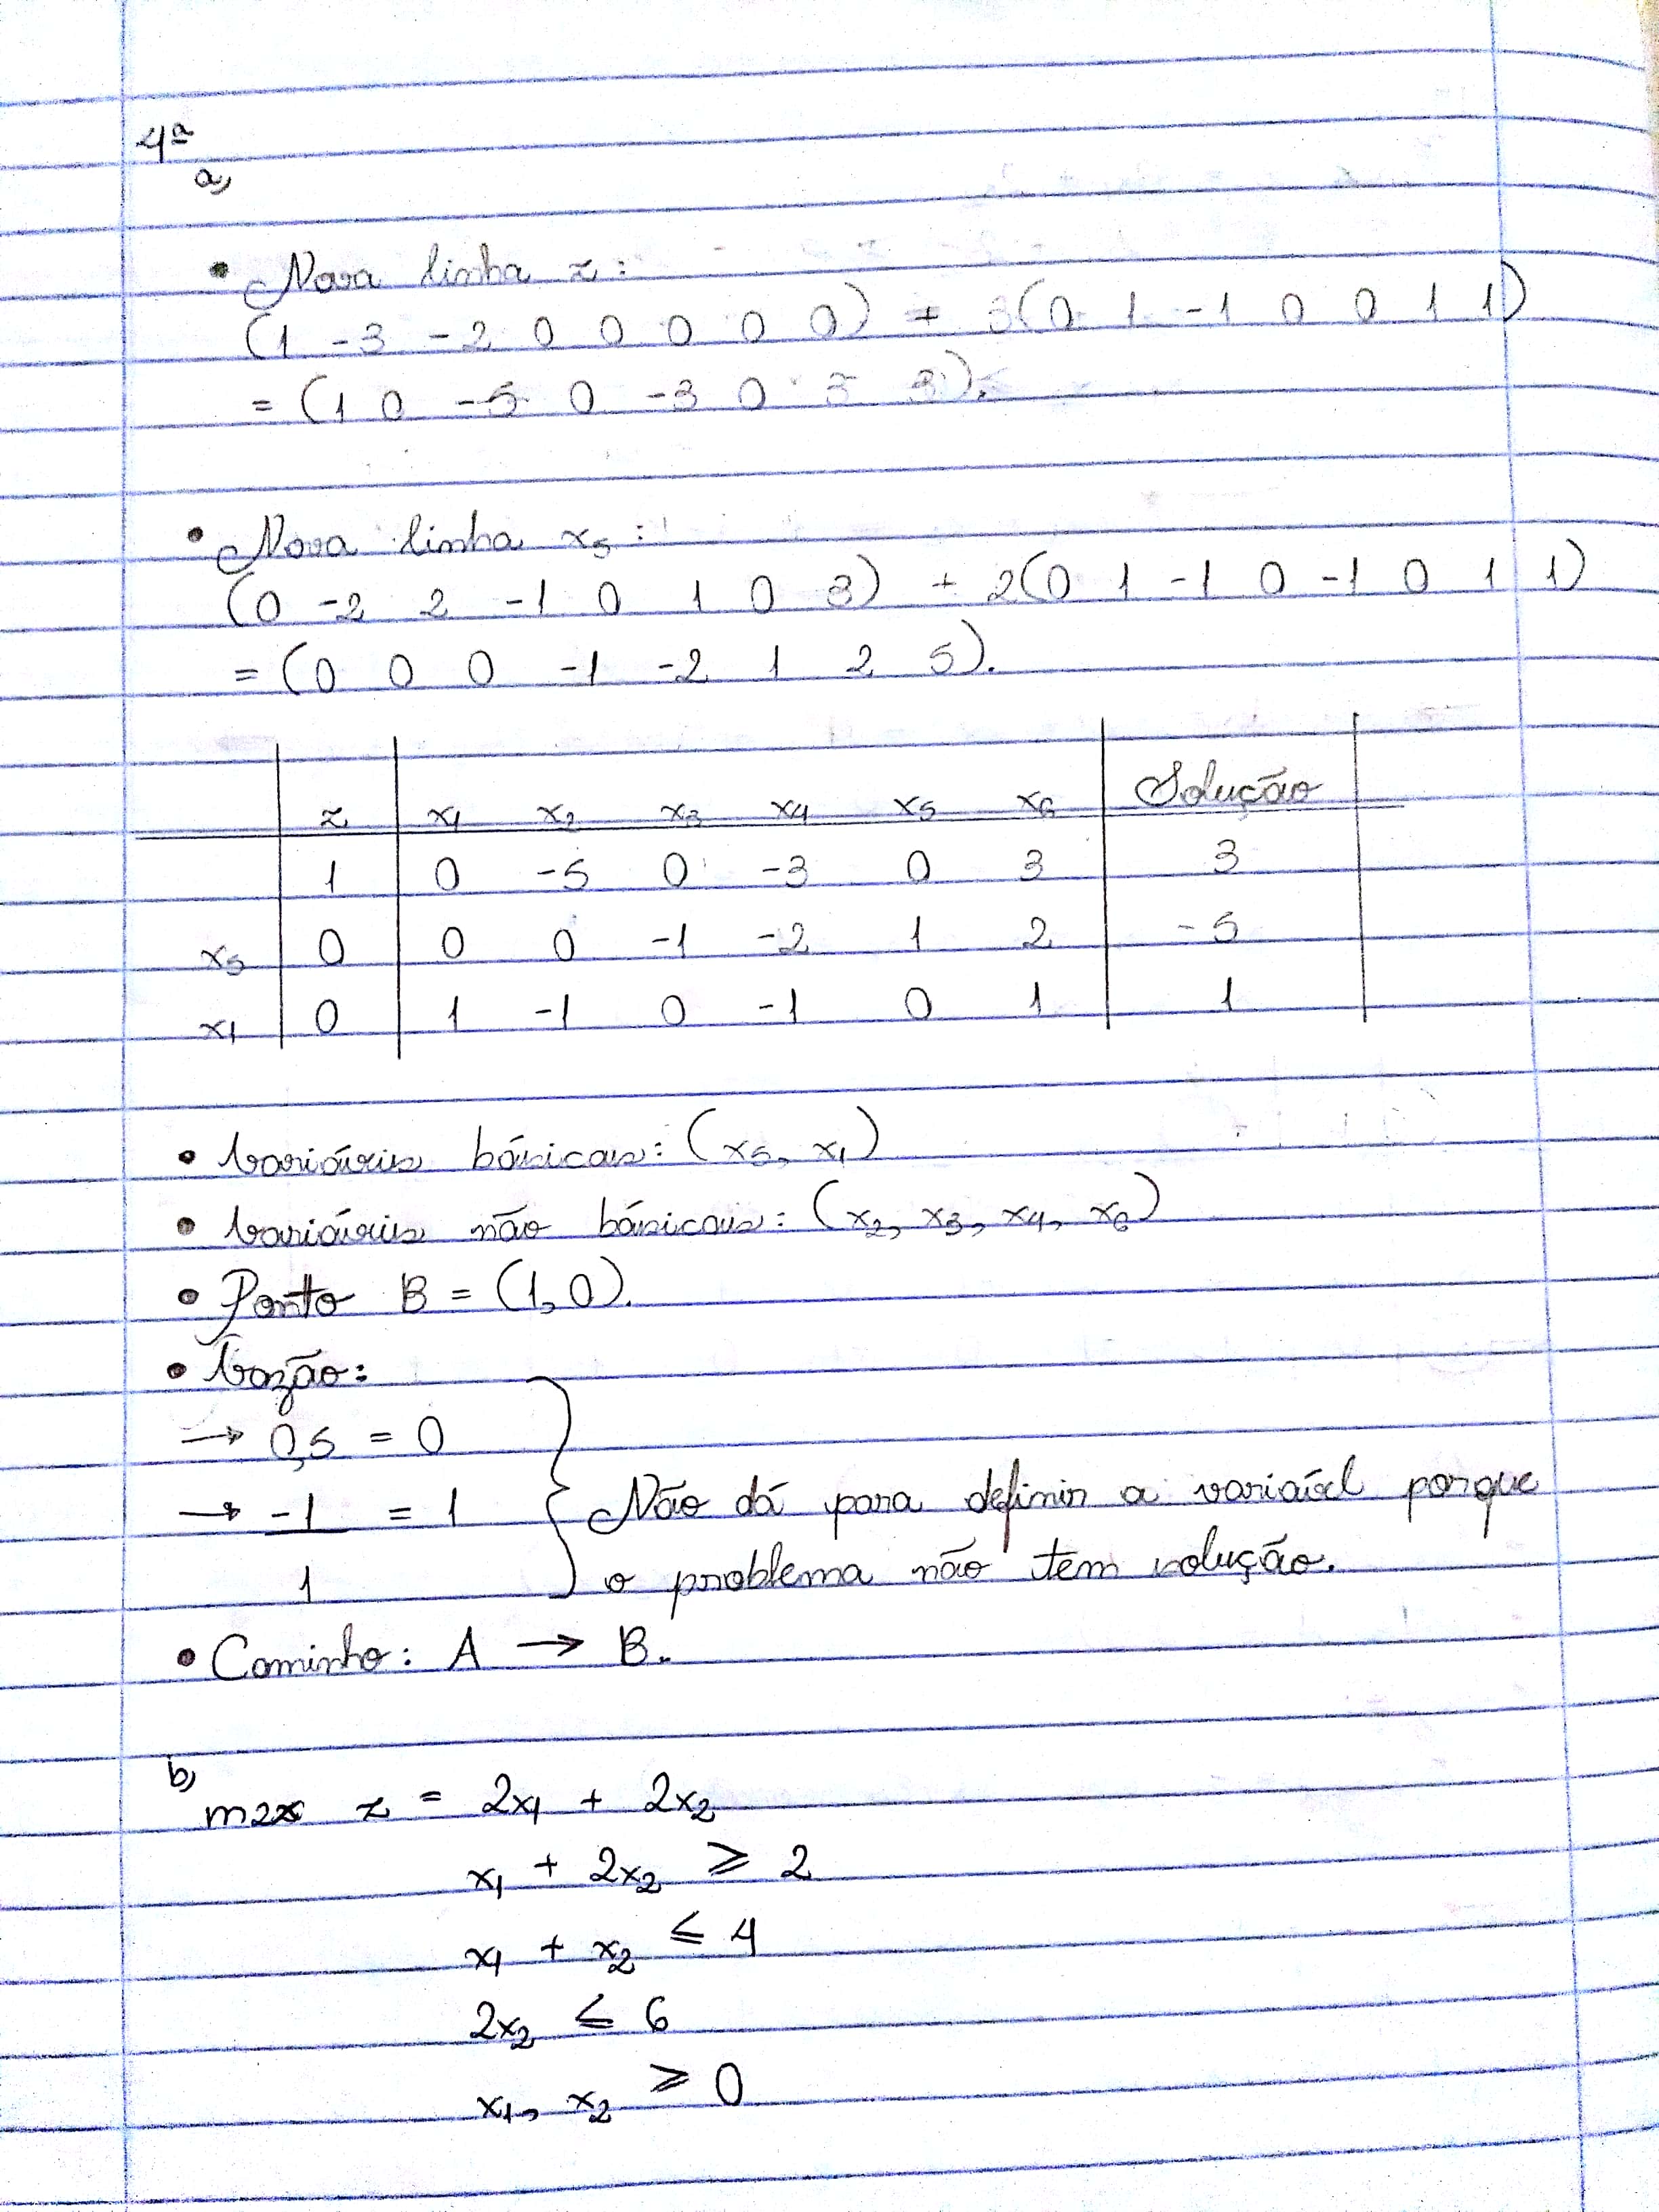 4ª
a)
• Nova linha z:
(1 -3 -2 0 0 0 0 0) + 3(0 1 -1 0 0 1 1)
= (1 0 -5 0 -3 0 3 3).
• Nova linha x5:
(0 -2 2 -1 0 1 0 3) + 2(0 1 -1 0 -1 0 1 1)
= (0 0 0 -1 -2 1 2 5).
z x1 x2 x3 x4 x5 x6 Solução
1 0 -5 0 -3 0 3 3
x5 0 0 0 -1 -2 1 2 -5
x1 0 1 -1 0 -1 0 1 1
• Variáveis básicas: (x5, x1)
• Variáveis não básicas: (x2, x3, x4, x6)
• Ponto B = (1,0).
• Vazão:
→ 0,5 = 0
→ -1 = 1
1
Não dá para definir a variável porque
o problema não tem solução.
• Caminho: A → B.
b)
max z = 2x1 + 2x2
x1 + 2x2 ≥ 2
x1 + x2 ≤ 4
2x2 ≤ 6
x1, x2 ≥ 0